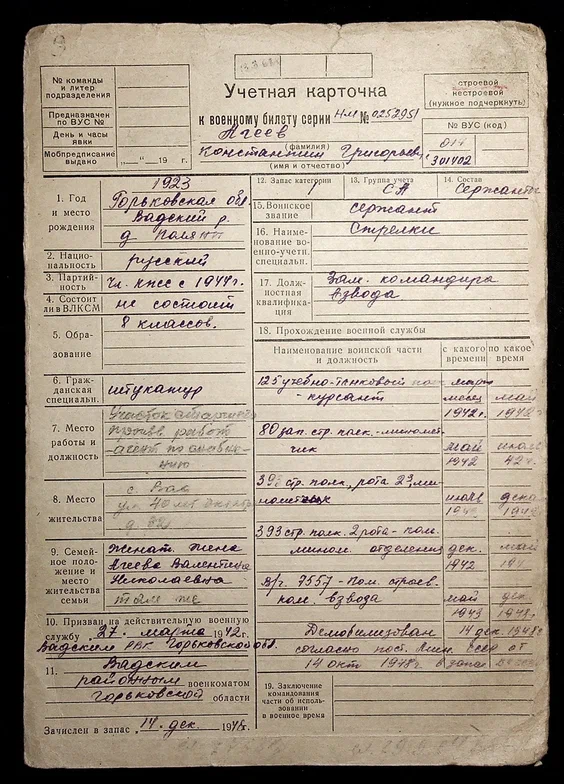 Учетная карточка
к военному билету серии НМ № 0252951
Агеев
(фамилия)
Константин Григорьевич
(имя и отчество)
№ команды
и литер
подразделения
Предназначен
по ВУС №
День и часы
явки
Мобпредписание
выдано „—“ 19 г.
строевой
нестроевой
(нужное подчеркнуть)
№ ВУС (код)
014
301402
1. Год
и место
рождения
1923
Горьковская обл.
Вадский р.
д
2. Нацио-
нальность
русский
3. Партий-
ность
чл. кпсс с 1944г.
4. Состоит
ли в ВЛКСМ
не состоит
5. Обра-
зование
8 классов.
6. Граж-
данская
специальн.
штукатур
7. Место
работы и
должность
Участок
работ
агент по снабже-
нию
8. Место
жительства
с. Вад
ул 40 лет
д.
9. Семейное поло-
жение и
место
жительства
семьи
Женат. жена
Агеева Валентина
Николаевна
там же
10. Призван на действительную военную
службу 27. марта 1942г.
Вадским РВК Горьковской обл.
11. Вадским
районным военкоматом
Горьковской области
Зачислен в запас 14. дек. 1948г.
12. Запас категории
13. Группа учета
СА
14. Состав
Сержанты
15. Воинское
звание
сержант
16. Наиме-
нование во-
енно-учетн.
специальн.
Стрелки
17. Долж-
ностная
квалифика-
ция
Зам. командира
взвода
18. Прохождение военной службы
Наименование воинской части
и должность
с какого
времени
по какое
время
125 учебно-танковый
- курсант
март
месяц
1942г.
май
80 зап. стр. полк.-миномет-
чик
май
1942
42г.
стр. полк, рота
393 стр. полк. 2 рота- ком.
миномет. отделения
дек.
1942
май
в/ч. 9557 - пом. строев.
ком. взвода
май
1943
дек
1948г.
Демобилизован 14 дек 1948г
согласно пост. Мин. ссср от
14 окт 1948г в запас
19. Заключение
командования
части об исполь-
зовании
в военное время